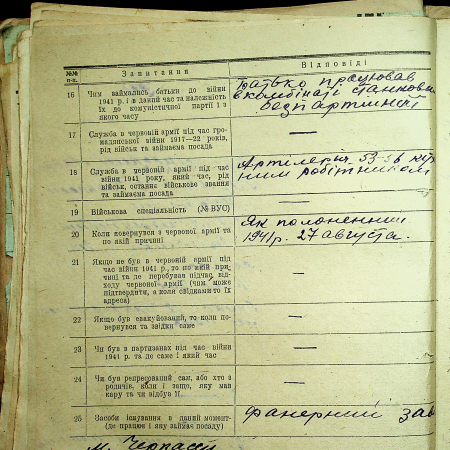 №№ п-п.
Запитання
Відповіді
16
Чим займались батьки до війни
1941 р. і в даний час та належність
їх до комуністичної партії і з
якого часу
Батько працював
в комбінаті
безпартійні
17
Служба в червоній армії під час гро-
мадянської війни 1917—22 років,
рід військ та займаєма посада
—
18
Служба в червоній армії під час
війни 1941 року, який час, рід
військ, останнє військове звання
та займаєма посада
Артилерія, 53-56
робітником
19
Військова спеціальність (№ ВУС)
—
20
Коли повернувся з червоної армії та
по якій причині
Як полоненний
1941 р. 27 августа.
21
Якщо не був в червоній армії під
час війни 1941 р., то по якій при-
чині та де перебував підчас від-
ходу червоної армії (чим може
підтвердити, а коли свідками то їх
адреса)
—
22
Якщо був евакуйований, то коли по-
вернувся та звідки саме
—
23
Чи був в партизанах під час війни
1941 р. та де саме і який час
—
24
Чи був репресований сам, або хто з
родичів, коли і защо, яку мав
кару та чи відбув її
—
25
Засоби існування в даний момент
(де працює і яку займає посаду)
Фанерний зав
м. Черкаси